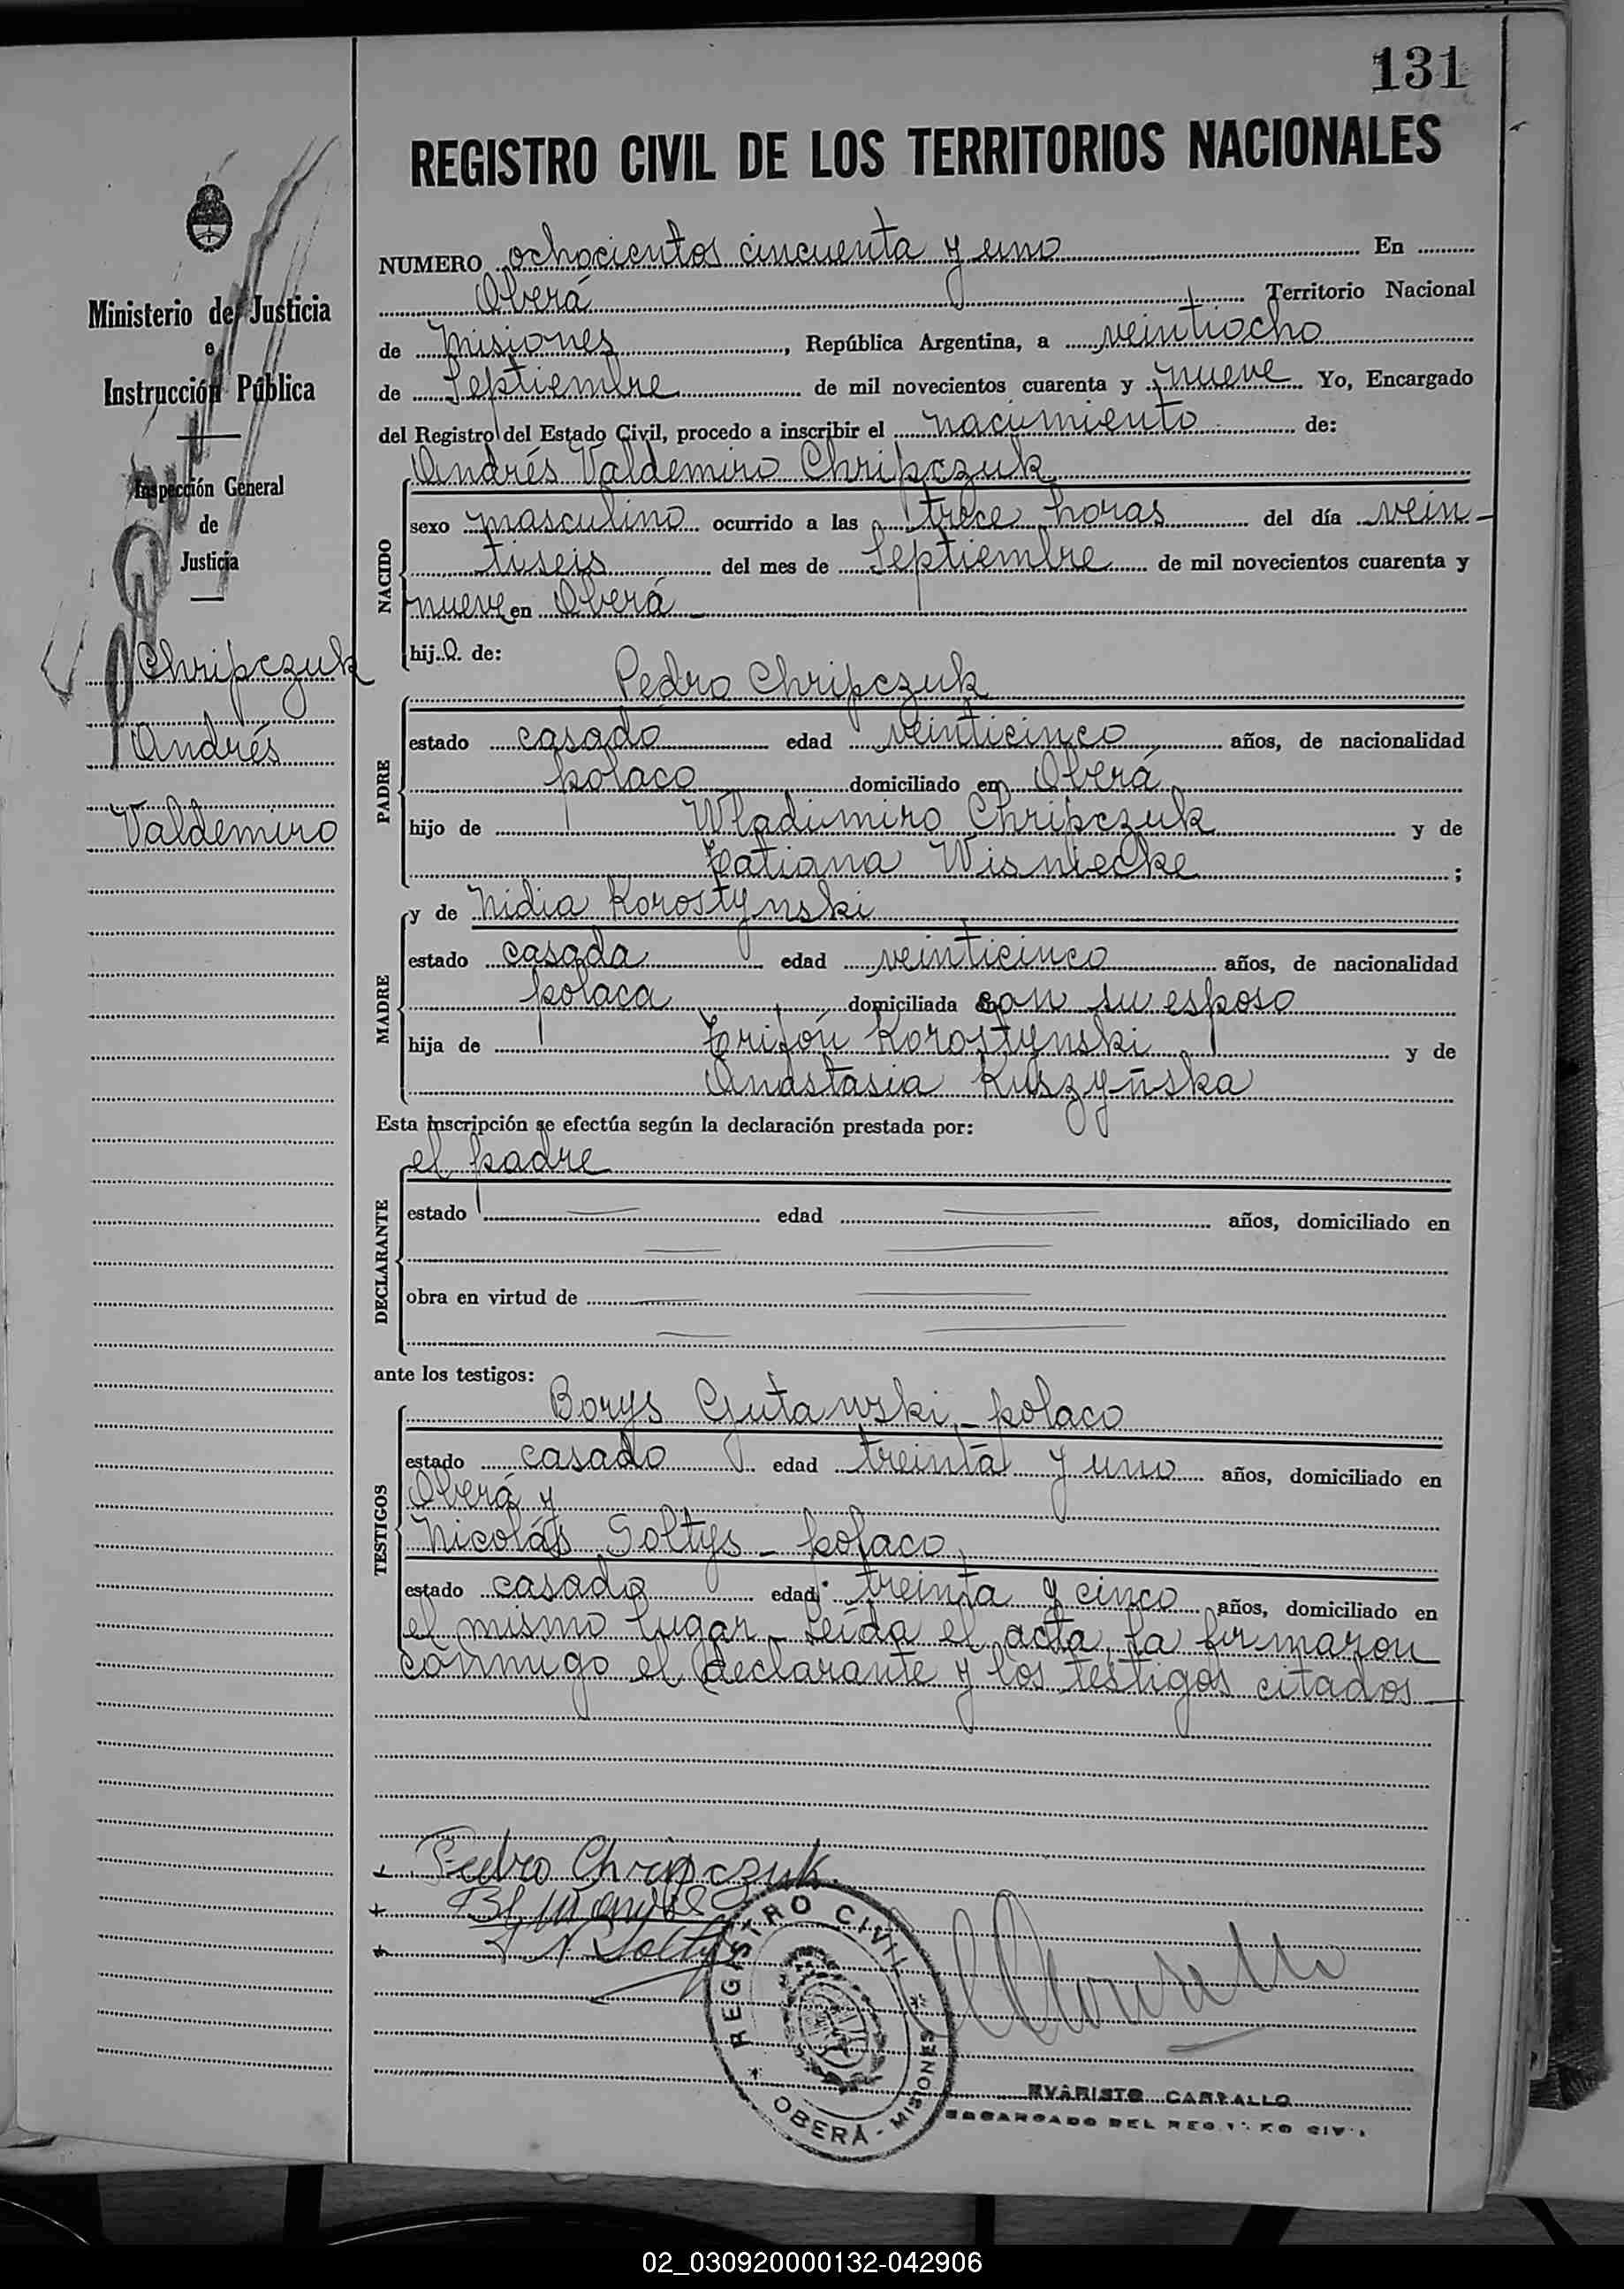 131
REGISTRO CIVIL DE LOS TERRITORIOS NACIONALES
Ministerio de Justicia
e
Instrucción Pública
Inspección General
de
Justicia
Chripczuk
Andrés
Valdemiro
NUMERO ochocientos cincuenta y uno En
Oberá Territorio Nacional
de Misiones, República Argentina, a veintiocho
de Septiembre de mil novecientos cuarenta y nueve Yo, Encargado
del Registro del Estado Civil, procedo a inscribir el nacimiento de:
Andrés Valdemiro Chripczuk
NACIDO
sexo masculino ocurrido a las trece horas del día vein-
tiseis del mes de Septiembre de mil novecientos cuarenta y
nueve en Oberá
hijo de:
Pedro Chripczuk
PADRE
estado casado edad veinticinco años, de nacionalidad
polaco domiciliado en Oberá
hijo de Wladimiro Chripczuk y de
Tatiana Wisniecke;
MADRE
y de Nidia Korostynski
estado casada edad veinticinco años, de nacionalidad
polaca domiciliada con su esposo
hija de Trifón Korostynski y de
Anastasia Kuszyñska
Esta inscripción se efectúa según la declaración prestada por:
el padre
DECLARANTE
estado edad años, domiciliado en
obra en virtud de
ante los testigos:
TESTIGOS
Borys Gutawski - polaco
estado casado edad treinta y uno años, domiciliado en
Oberá y
Nicolás Soltys - polaco
estado casado edad treinta y cinco años, domiciliado en
el mismo lugar - Leída el acta, la firmaron
conmigo el declarante y los testigos citados
Pedro Chripczuk
N Soltys
REGISTRO CIVIL
OBERÁ - MISIONES
EVARISTO CARVALLO
ENCARGADO DEL REGISTRO CIVIL
02_030920000132-042906